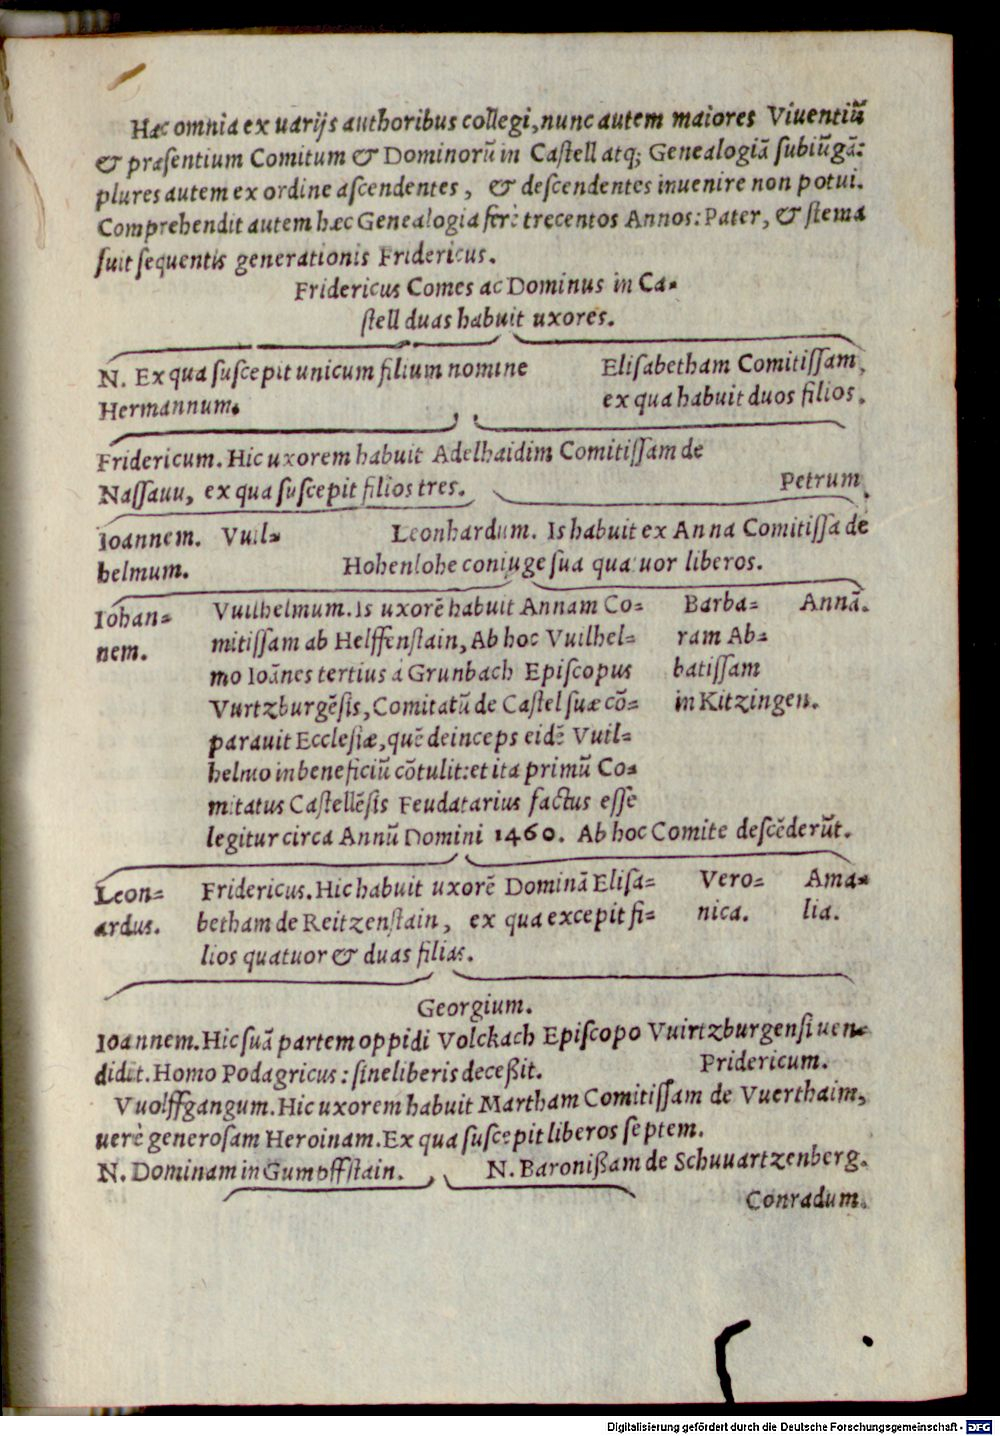 Hæc omnia ex uarijs authoribus collegi, nunc autem maiores Viuentiũ
& præsentium Comitum & Dominorũ in Castell atq; Genealogiã subiũgã:
plures autem ex ordine ascendentes, & descendentes inuenire non potui.
Comprehendit autem hæc Genealogia ferè trecentos Annos: Pater, & stema
fuit sequentis generationis Fridericus.
Fridericus Comes ac Dominus in Ca-
stell duas habuit uxores.
N. Ex qua suscepit unicum filium nomine
Hermannum.
Elisabetham Comitissam,
ex qua habuit duos filios.
Fridericum. Hic uxorem habuit Adelhaidim Comitissam de
Nassauu, ex qua suscepit filios tres.
Petrum.
Ioannem. Vuil-
helmum.
Leonhardum. Is habuit ex Anna Comitissa de
Hohenlohe coniuge sua quatuor liberos.
Iohan-
nem.
Vuilhelmum. Is uxorē habuit Annam Co-
mitissam ab Helffenstain, Ab hoc Vuilhel-
mo Ioānes tertius á Grunbach Episcopus
Vurtzburgēsis, Comitatũ de Castel suæ cō-
parauit Ecclesiæ, quē deinceps eidē Vuil-
helmo in beneficiũ cōtulit: et ita primũ Co-
mitatus Castellēsis Feudatarius factus esse
legitur circa Annũ Domini 1460. Ab hoc Comite descēderũt.
Barba-
ram Ab-
batissam
in Kitzingen.
Annā.
Leon-
ardus.
Fridericus. Hic habuit uxorē Dominā Elisa-
betham de Reitzenstain, ex qua excepit fi-
lios quatuor & duas filias.
Vero-
nica.
Ama-
lia.
Georgium.
Ioannem. Hic suā partem oppidi Volckach Episcopo Vuirtzburgensi uen-
didit. Homo Podagricus: sine liberis deceßit.
Pridericum.
Vuolffgangum. Hic uxorem habuit Martham Comitissam de Vuerthaim,
uerè generosam Heroinam. Ex qua suscepit liberos septem.
N. Dominam in Gumpffstain.
N. Baronißam de Schuuartzenberg.
Conradum.
Digitalisierung gefördert durch die Deutsche Forschungsgemeinschaft - DFG